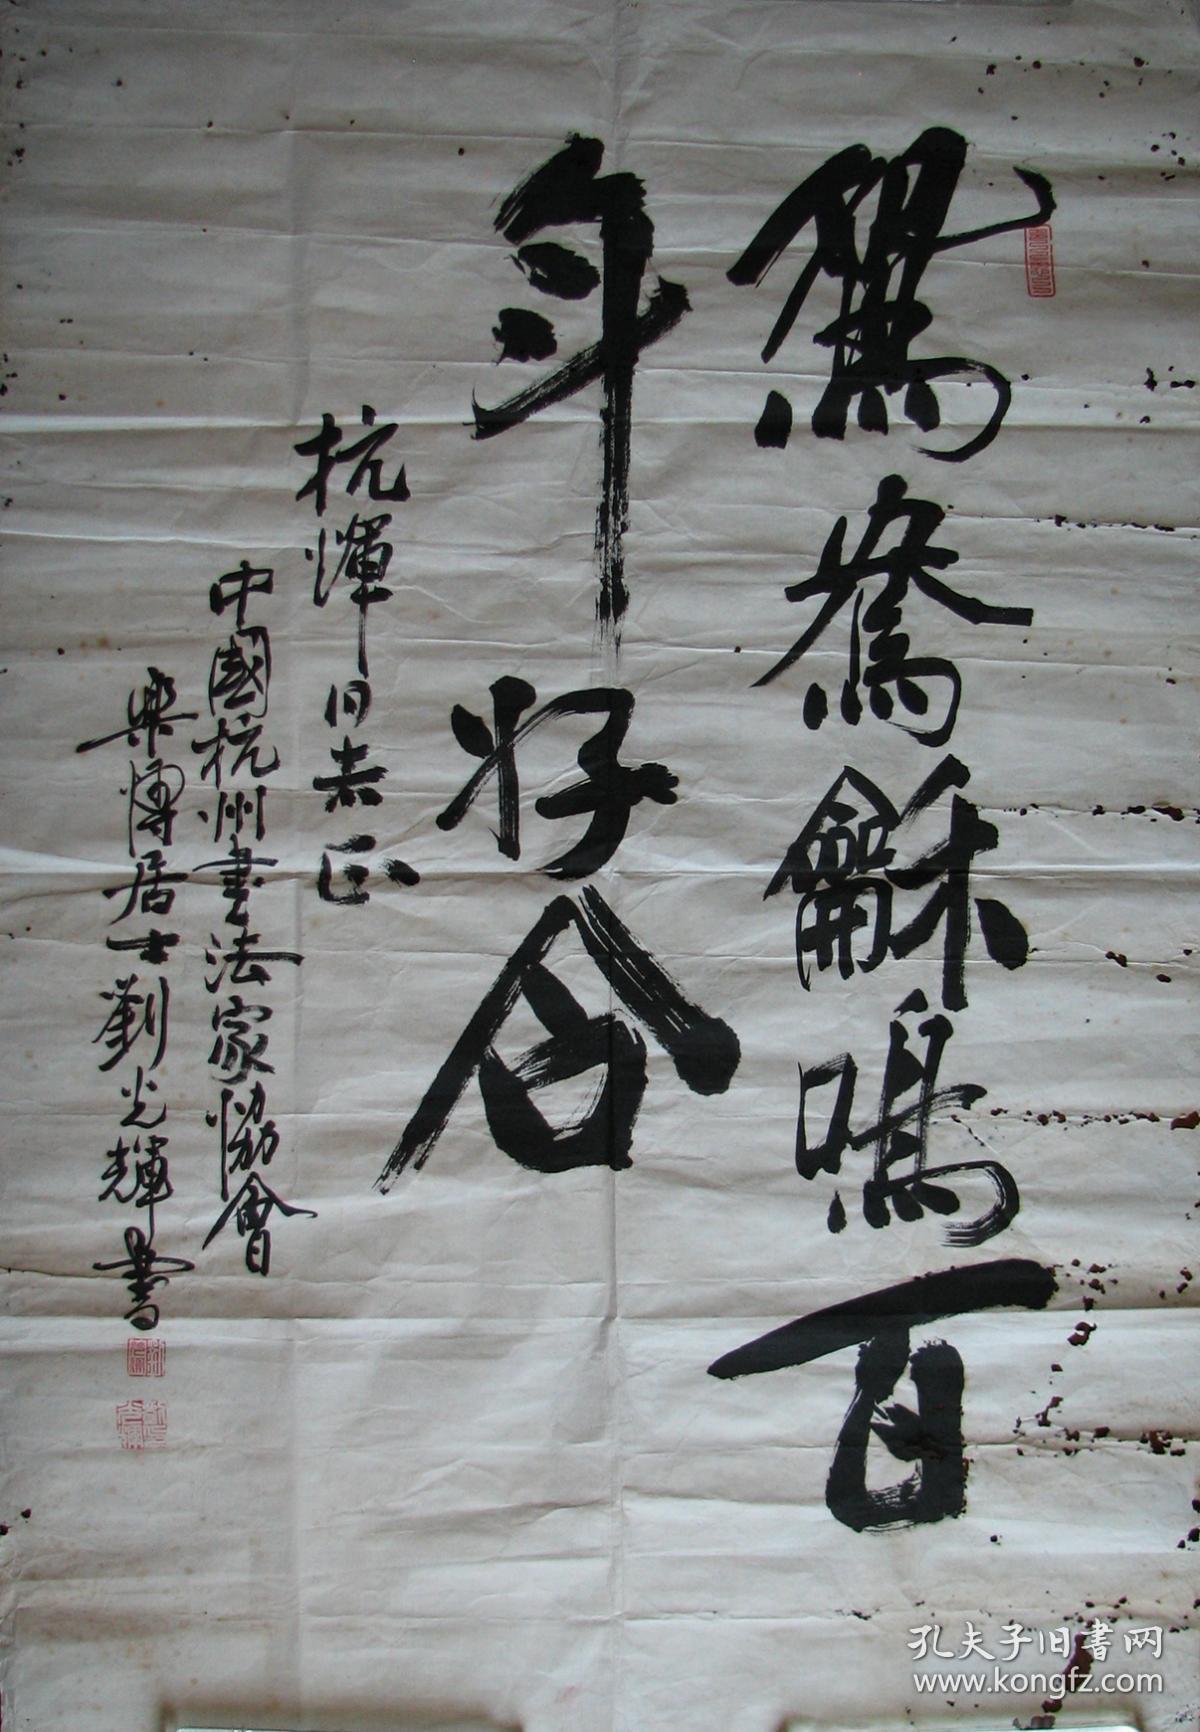 鴛鴦龢鳴百
年好合
杭煇同志正
中國杭州書法家協會
樂博居士劉光輝書
孔夫子旧书网
www.kongfz.com